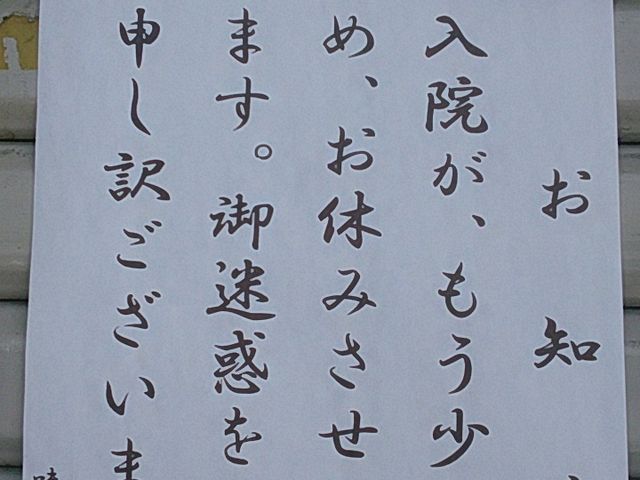 お知
入院が、もう少
め、お休みさせ
ます。御迷惑を
申し訳ございま